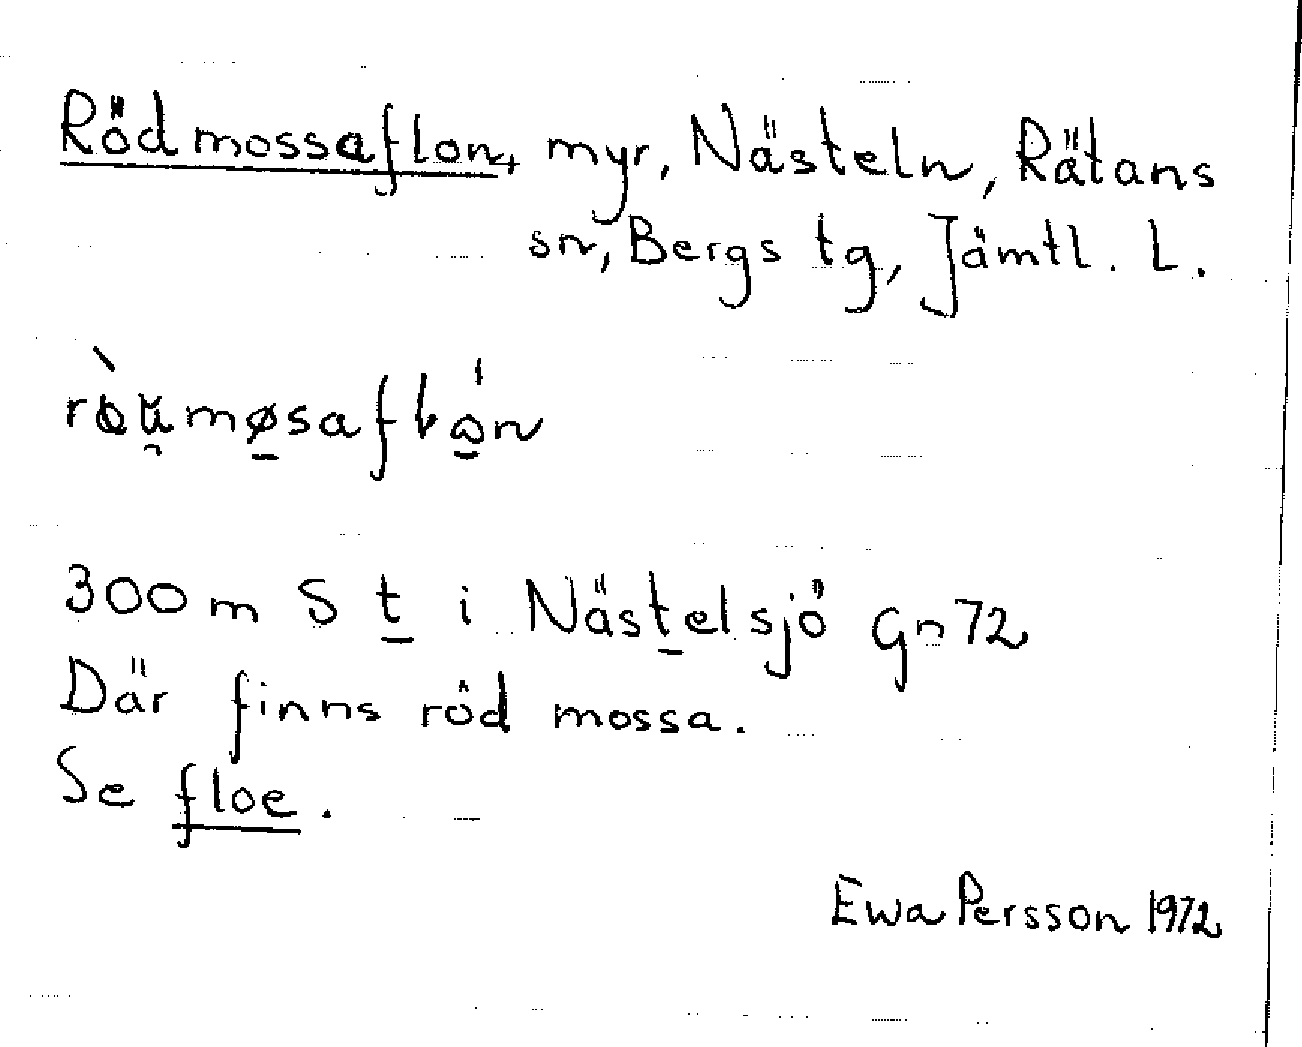 Rödmossaflon, myr, Nästeln, Rätans
sn, Bergs tg, Jämtl. L.
300 m S t i Nästelsjö Gn72
Där finns röd mossa.
Se floe.
Ewa Persson 1972